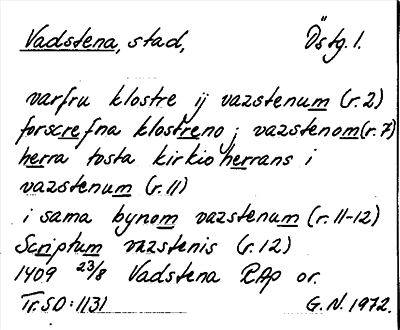 Vadstena, stad, Östg. l.
varfru klostre ij vazstenum (r.2)
forscrefna klostreno j vazstenom (r.7)
herra tosta kirkioherrans i
vazstenum (r.11)
i sama bynom vazstenum (r.11-12)
Scriptum vazstenis (r.12)
1409 23/8 Vadstena RAp or.
Tr. SD: 1131 G.N. 1972.